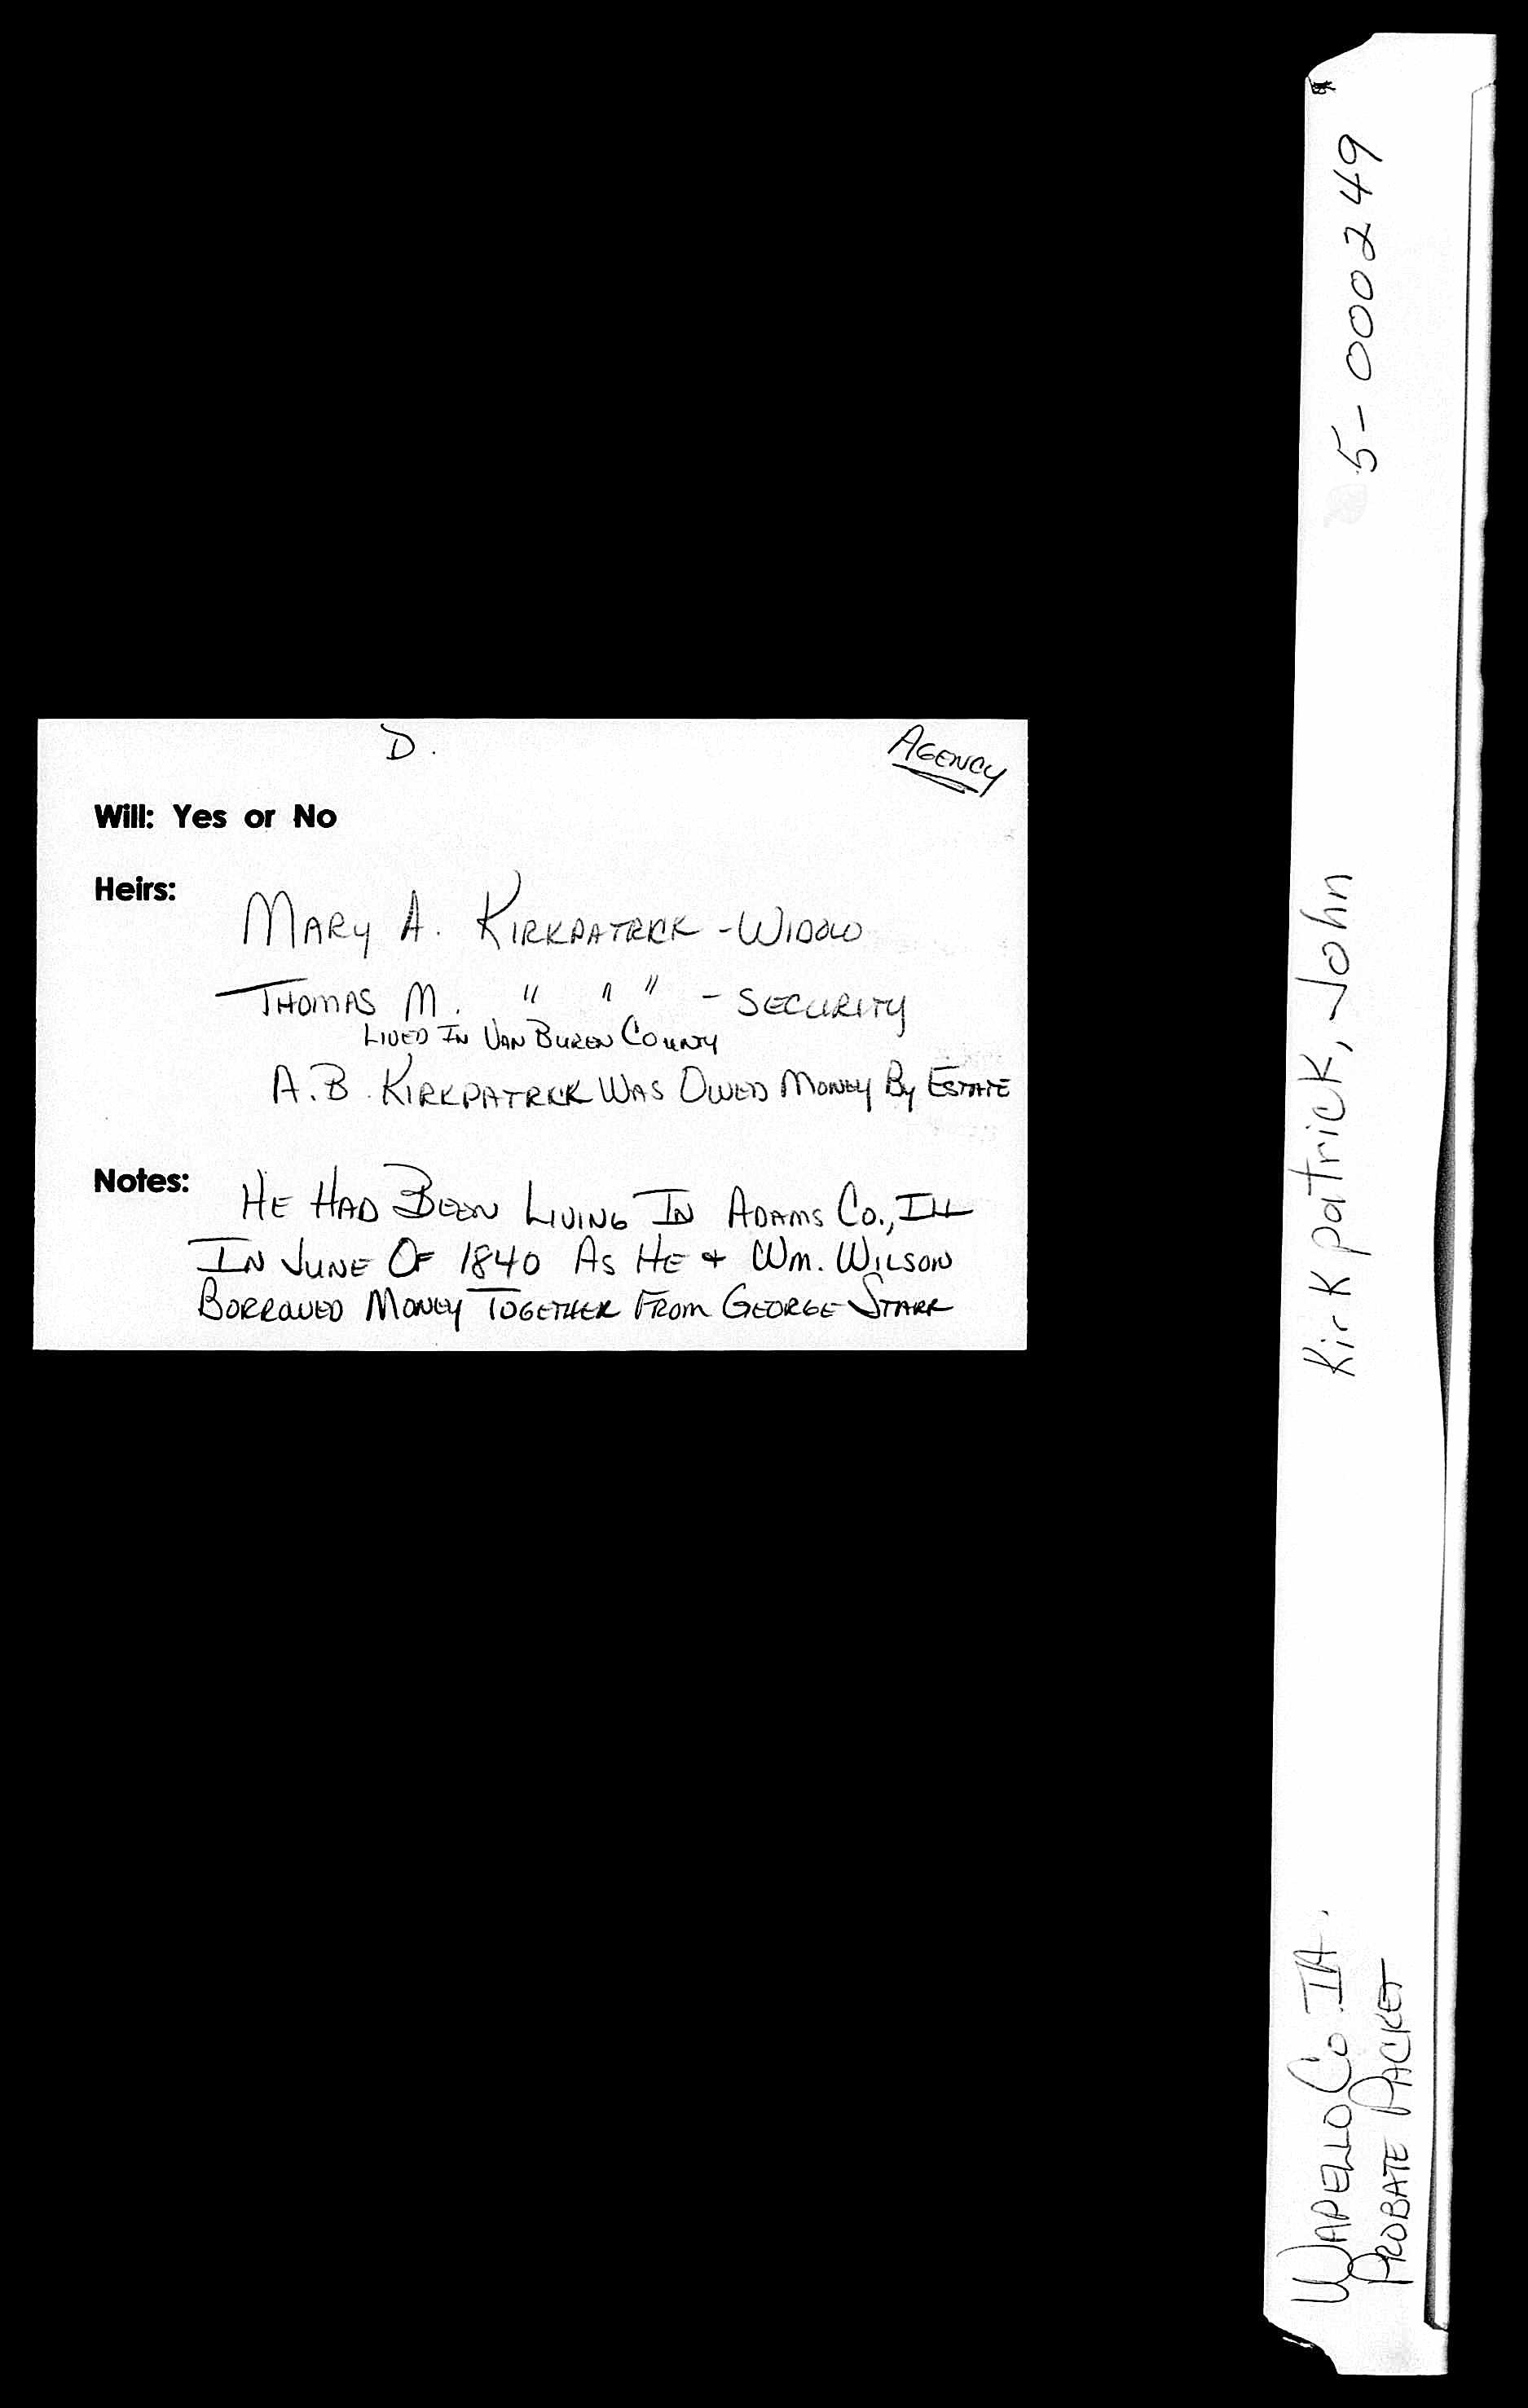 D.
AGENCY
Will: Yes or No
Heirs:
MARY A. KIRKPATRICK - WIDOW
THOMAS M. " " " - SECURITY
LIVED IN VAN BUREN COUNTY
A.B. KIRKPATRICK WAS OWED MONEY BY ESTATE
Notes:
HE HAD BEEN LIVING IN ADAMS CO., ILL
IN JUNE OF 1840 AS HE & WM. WILSON
BORROWED MONEY TOGETHER FROM GEORGE STARR
WAPELLO CO IA.
PROBATE PACKET
KirKpatricK, John
5-000249